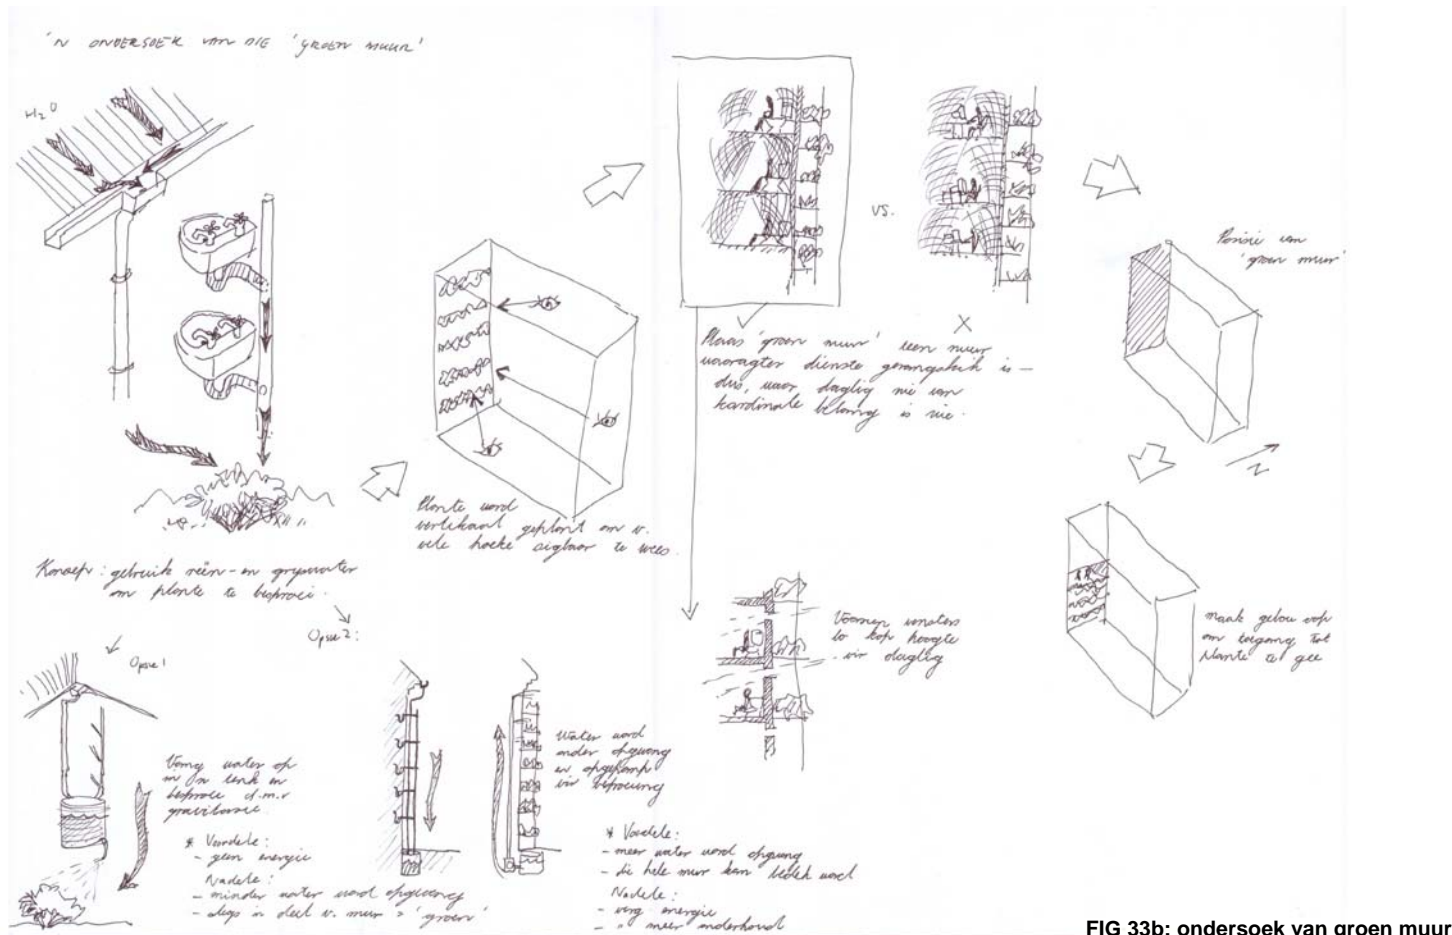 'N ONDERSOEK VAN DIE 'GROEN MUUR'
H₂O
Konsep: gebruik reën- en gryswater
om plante te besproei.
Opsie 1
Vang water op
in 'n tenk en
besproei d.m.v
gravitasie.
* Voordele:
- geen energie
Nadele:
- minder water word opgevang
- slegs 'n deel v. muur = 'groen'
Opsie 2:
Water word
onder opgevang
en opgepomp
vir besproeiing
* Voordele:
- meer water word opgevang
- die hele muur kan bedek word
Nadele:
- verg energie
- " meer onderhoud
Plante word
vertikaal geplant om v.
vele hoeke sigbaar te wees.
VS.
Plaas 'groen muur' teen muur
waaragter dienste gerangskik is -
dus, waar daglig nie van
kardinale belang is nie.
Vensters
bo kop hoogte
- vir daglig
Posisie van
'groen muur'
N
maak gebou oop
om toegang tot
plante te gee
FIG 33b: ondersoek van groen muur